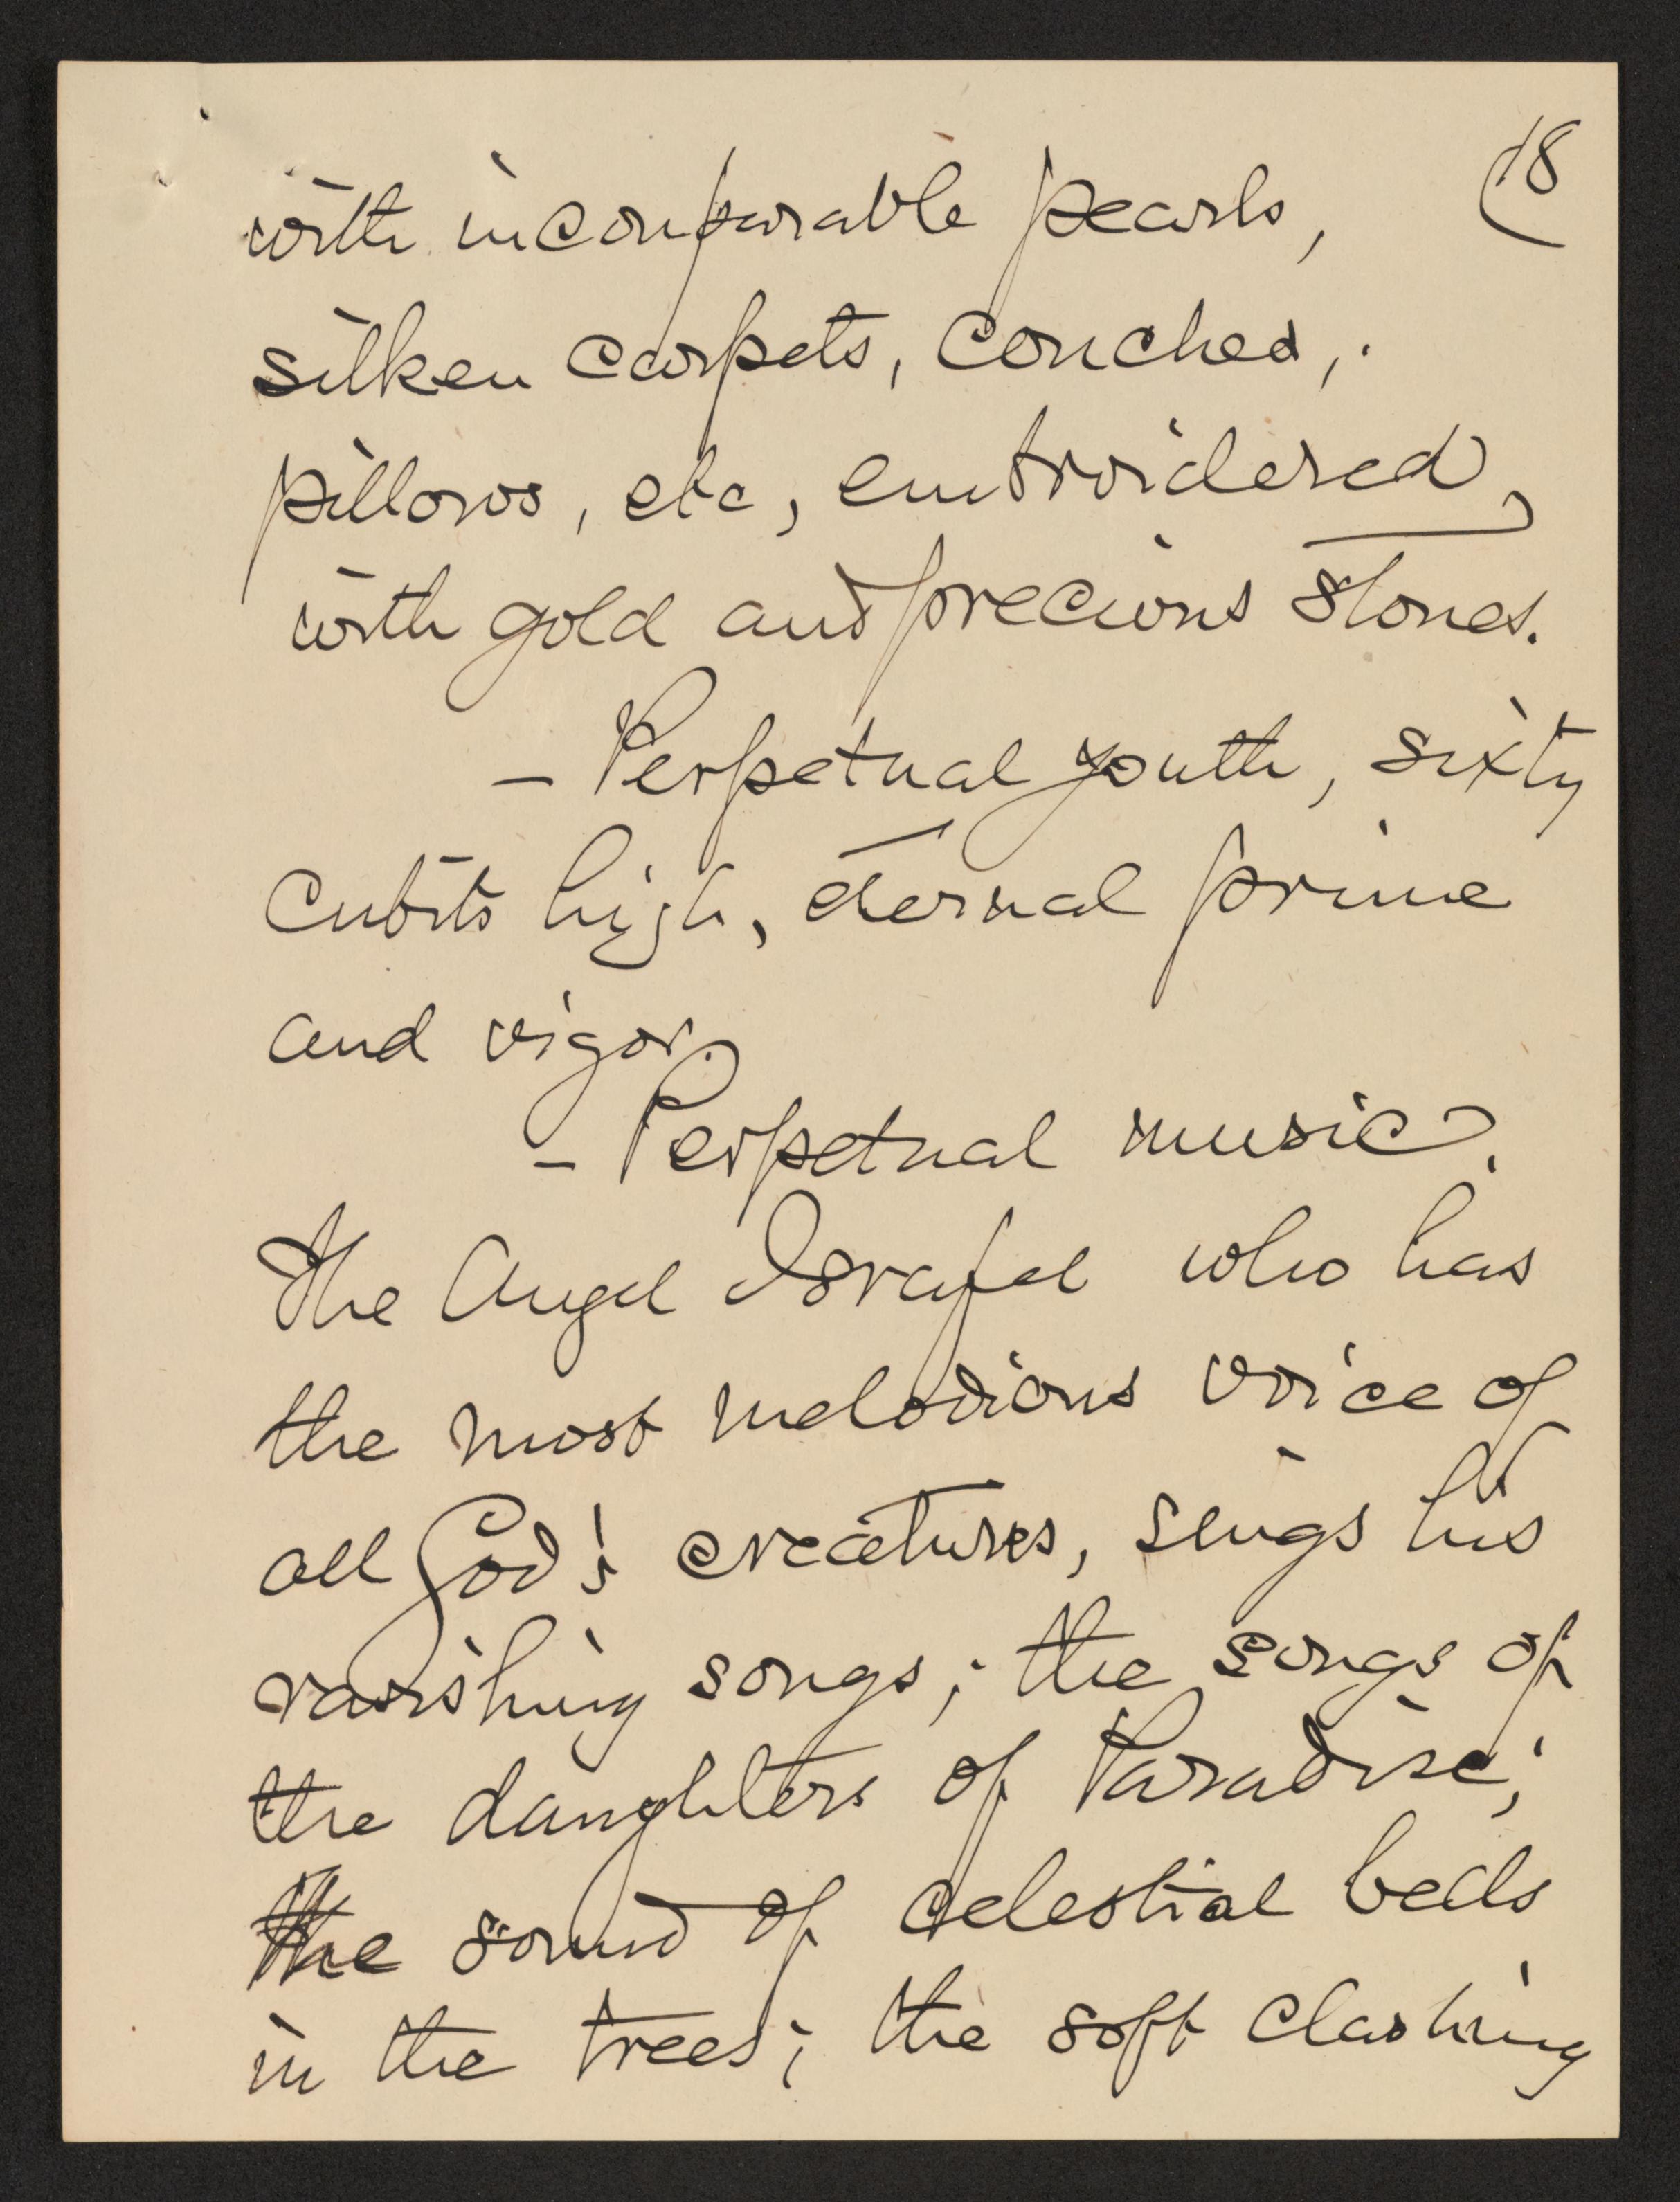 18
with incomparable pearls,
silken carpets, couches,
pillows, etc, embroidered
with gold and precious stones.
- Perpetual youth, sixty
cubits high, eternal prime
and vigor.
- Perpetual music.
The Angel Israfel who has
the most melodious voice of
all God's creatures, sings his
ravishing songs; the songs of
the daughters of Paradise;
the sound of celestial bells
in the trees; the soft clashing